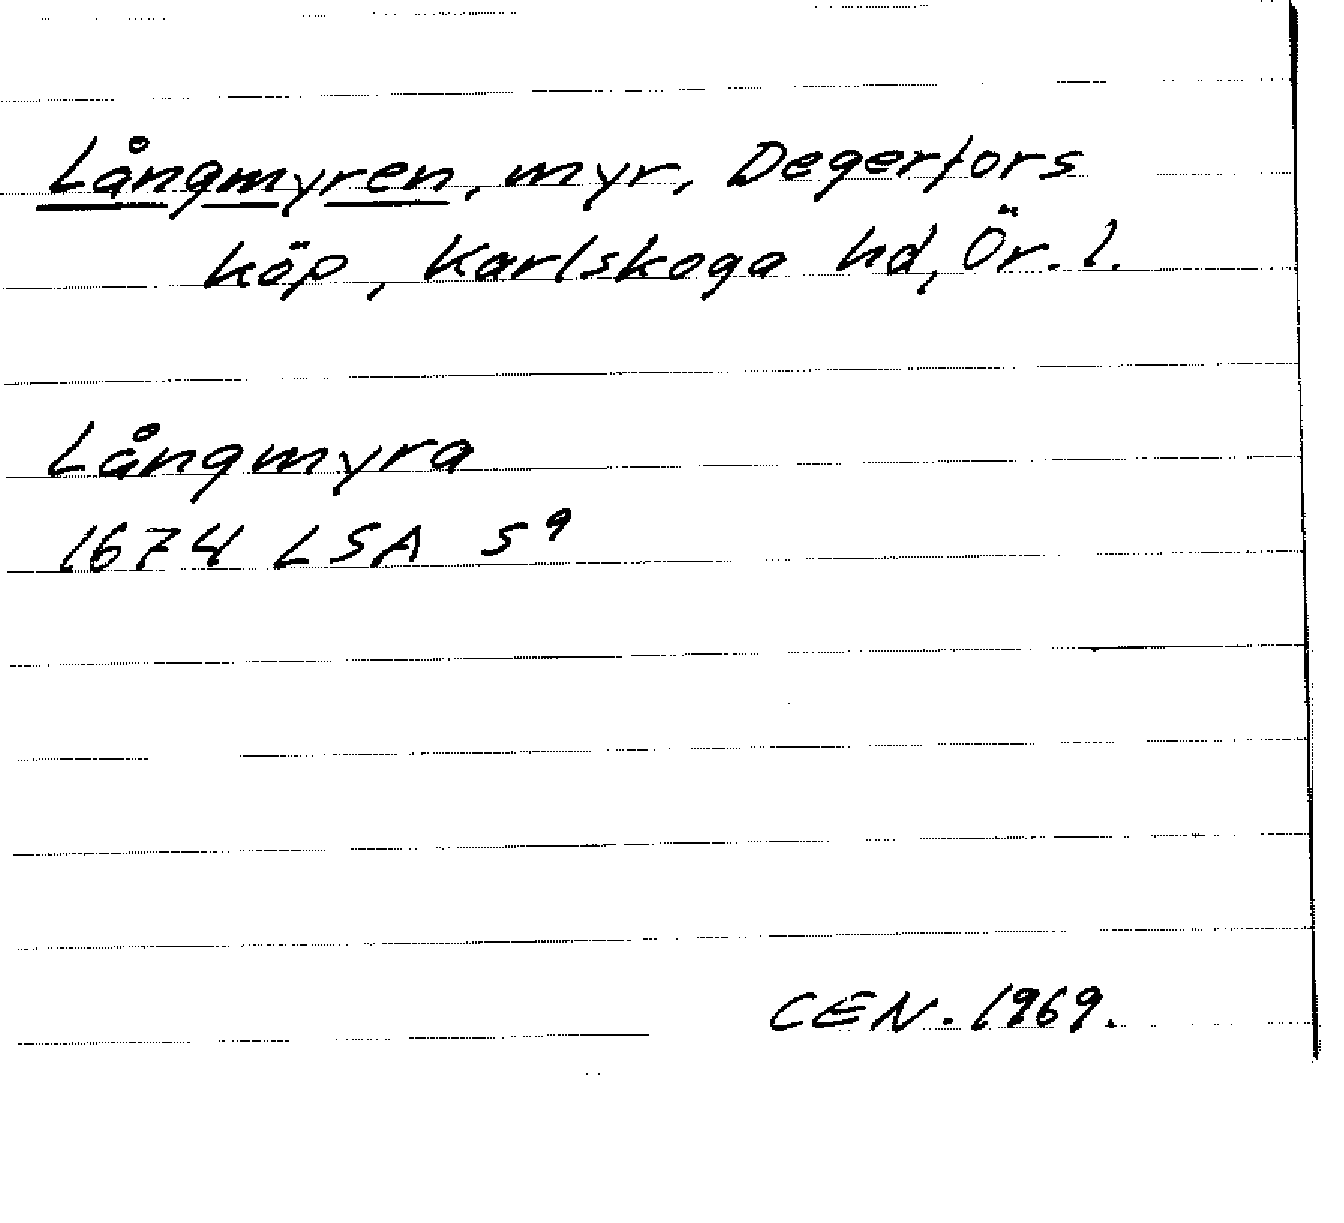 Långmyren, myr, Degerfors
köp, Karlskoga hd, Ör. l.
Långmyra
1674 LSA S⁹
CEN. 1969.